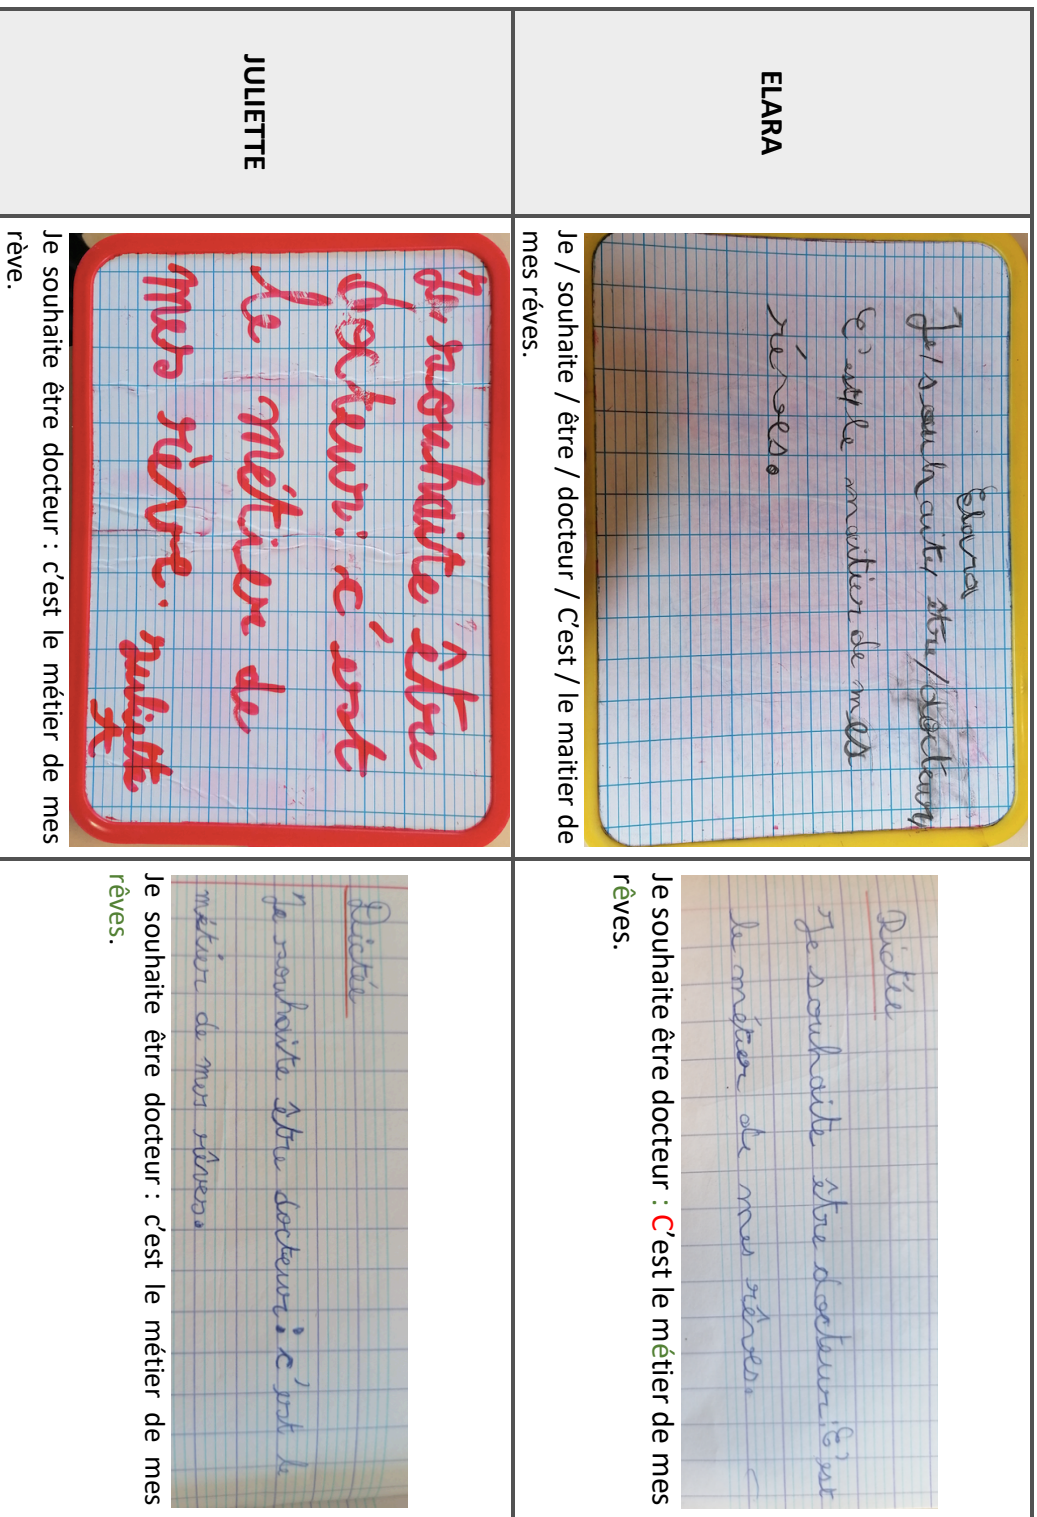 ELARA
Elara
Je/ souhaite/ être/ docteur/
C'est/ le maitier de mes
réves.
Je / souhaite / être / docteur / C'est / le maitier de
mes réves.
Dictée
Je souhaite être docteur : C'est
le métier de mes rêves.
Je souhaite être docteur : C'est le métier de mes
rêves.
JULIETTE
Je souhaite être
docteur : c'est
le métier de
mes rève.
juliette
Je souhaite être docteur : c'est le métier de mes
rève.
Dictée
Je souhaite être docteur : c'est le
métier de mes rêves.
Je souhaite être docteur : c'est le métier de mes
rêves.